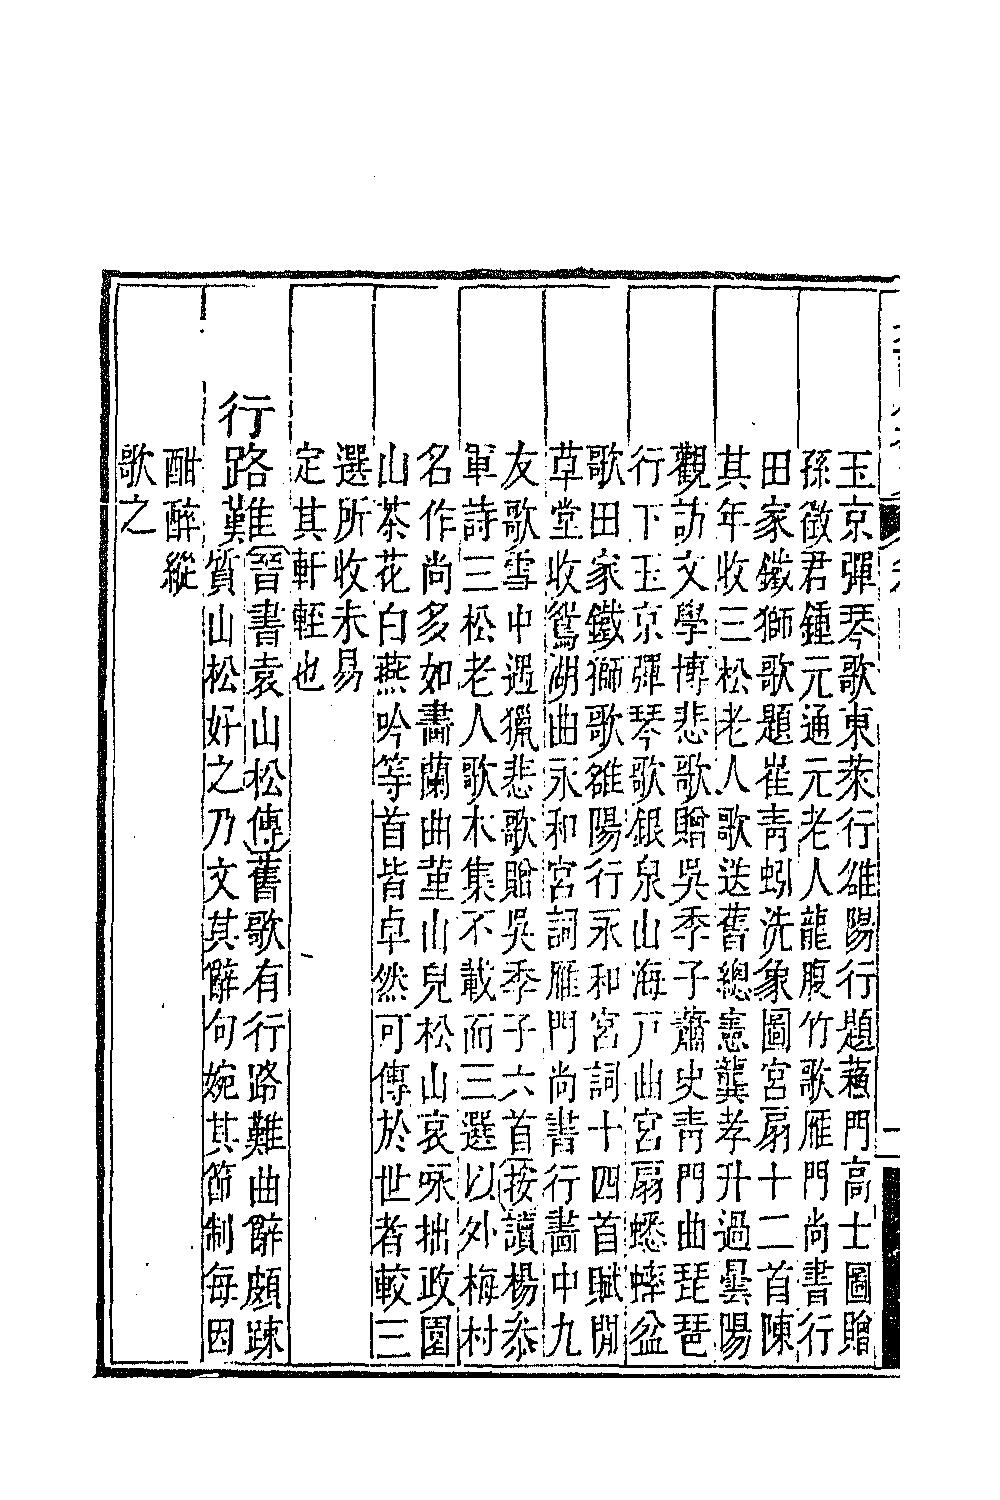 玉京彈琴歌東萊行雒陽行題蘓門高士圖贈
孫徵君鍾元通元老人龍腹竹歌雁門尚書行
田家鐵獅歌題崔靑蚓洗象圖宮扇十二首陳
其年收三松老人歌送舊總憲龔孝升過曇陽
觀訪文學博悲歌贈吳季子蕭史靑門曲琵琶
行下玉京彈琴歌銀泉山海戸曲宮扇蟋蟀盆
歌田家鐵獅歌雒陽行永和宮詞十四首賦閒
草堂收鴛湖曲永和宮詞雁門尚書行畵中九
友歌雪中遇獵悲歌贈吳季子六首按讀楊忝
軍詩三松老人歌木集不載而三選以外梅村
名作尚多如畵蘭曲董山兒松山哀咏拙政園
山茶花白燕吟等首皆卓然可傳於世者較三
選所收未易
定其軒輊也
行路難晉書袁山松傳舊歌有行路難曲辭頗踈
質山松好之乃文其辭句婉其節制每因
酣醉縱
歌之